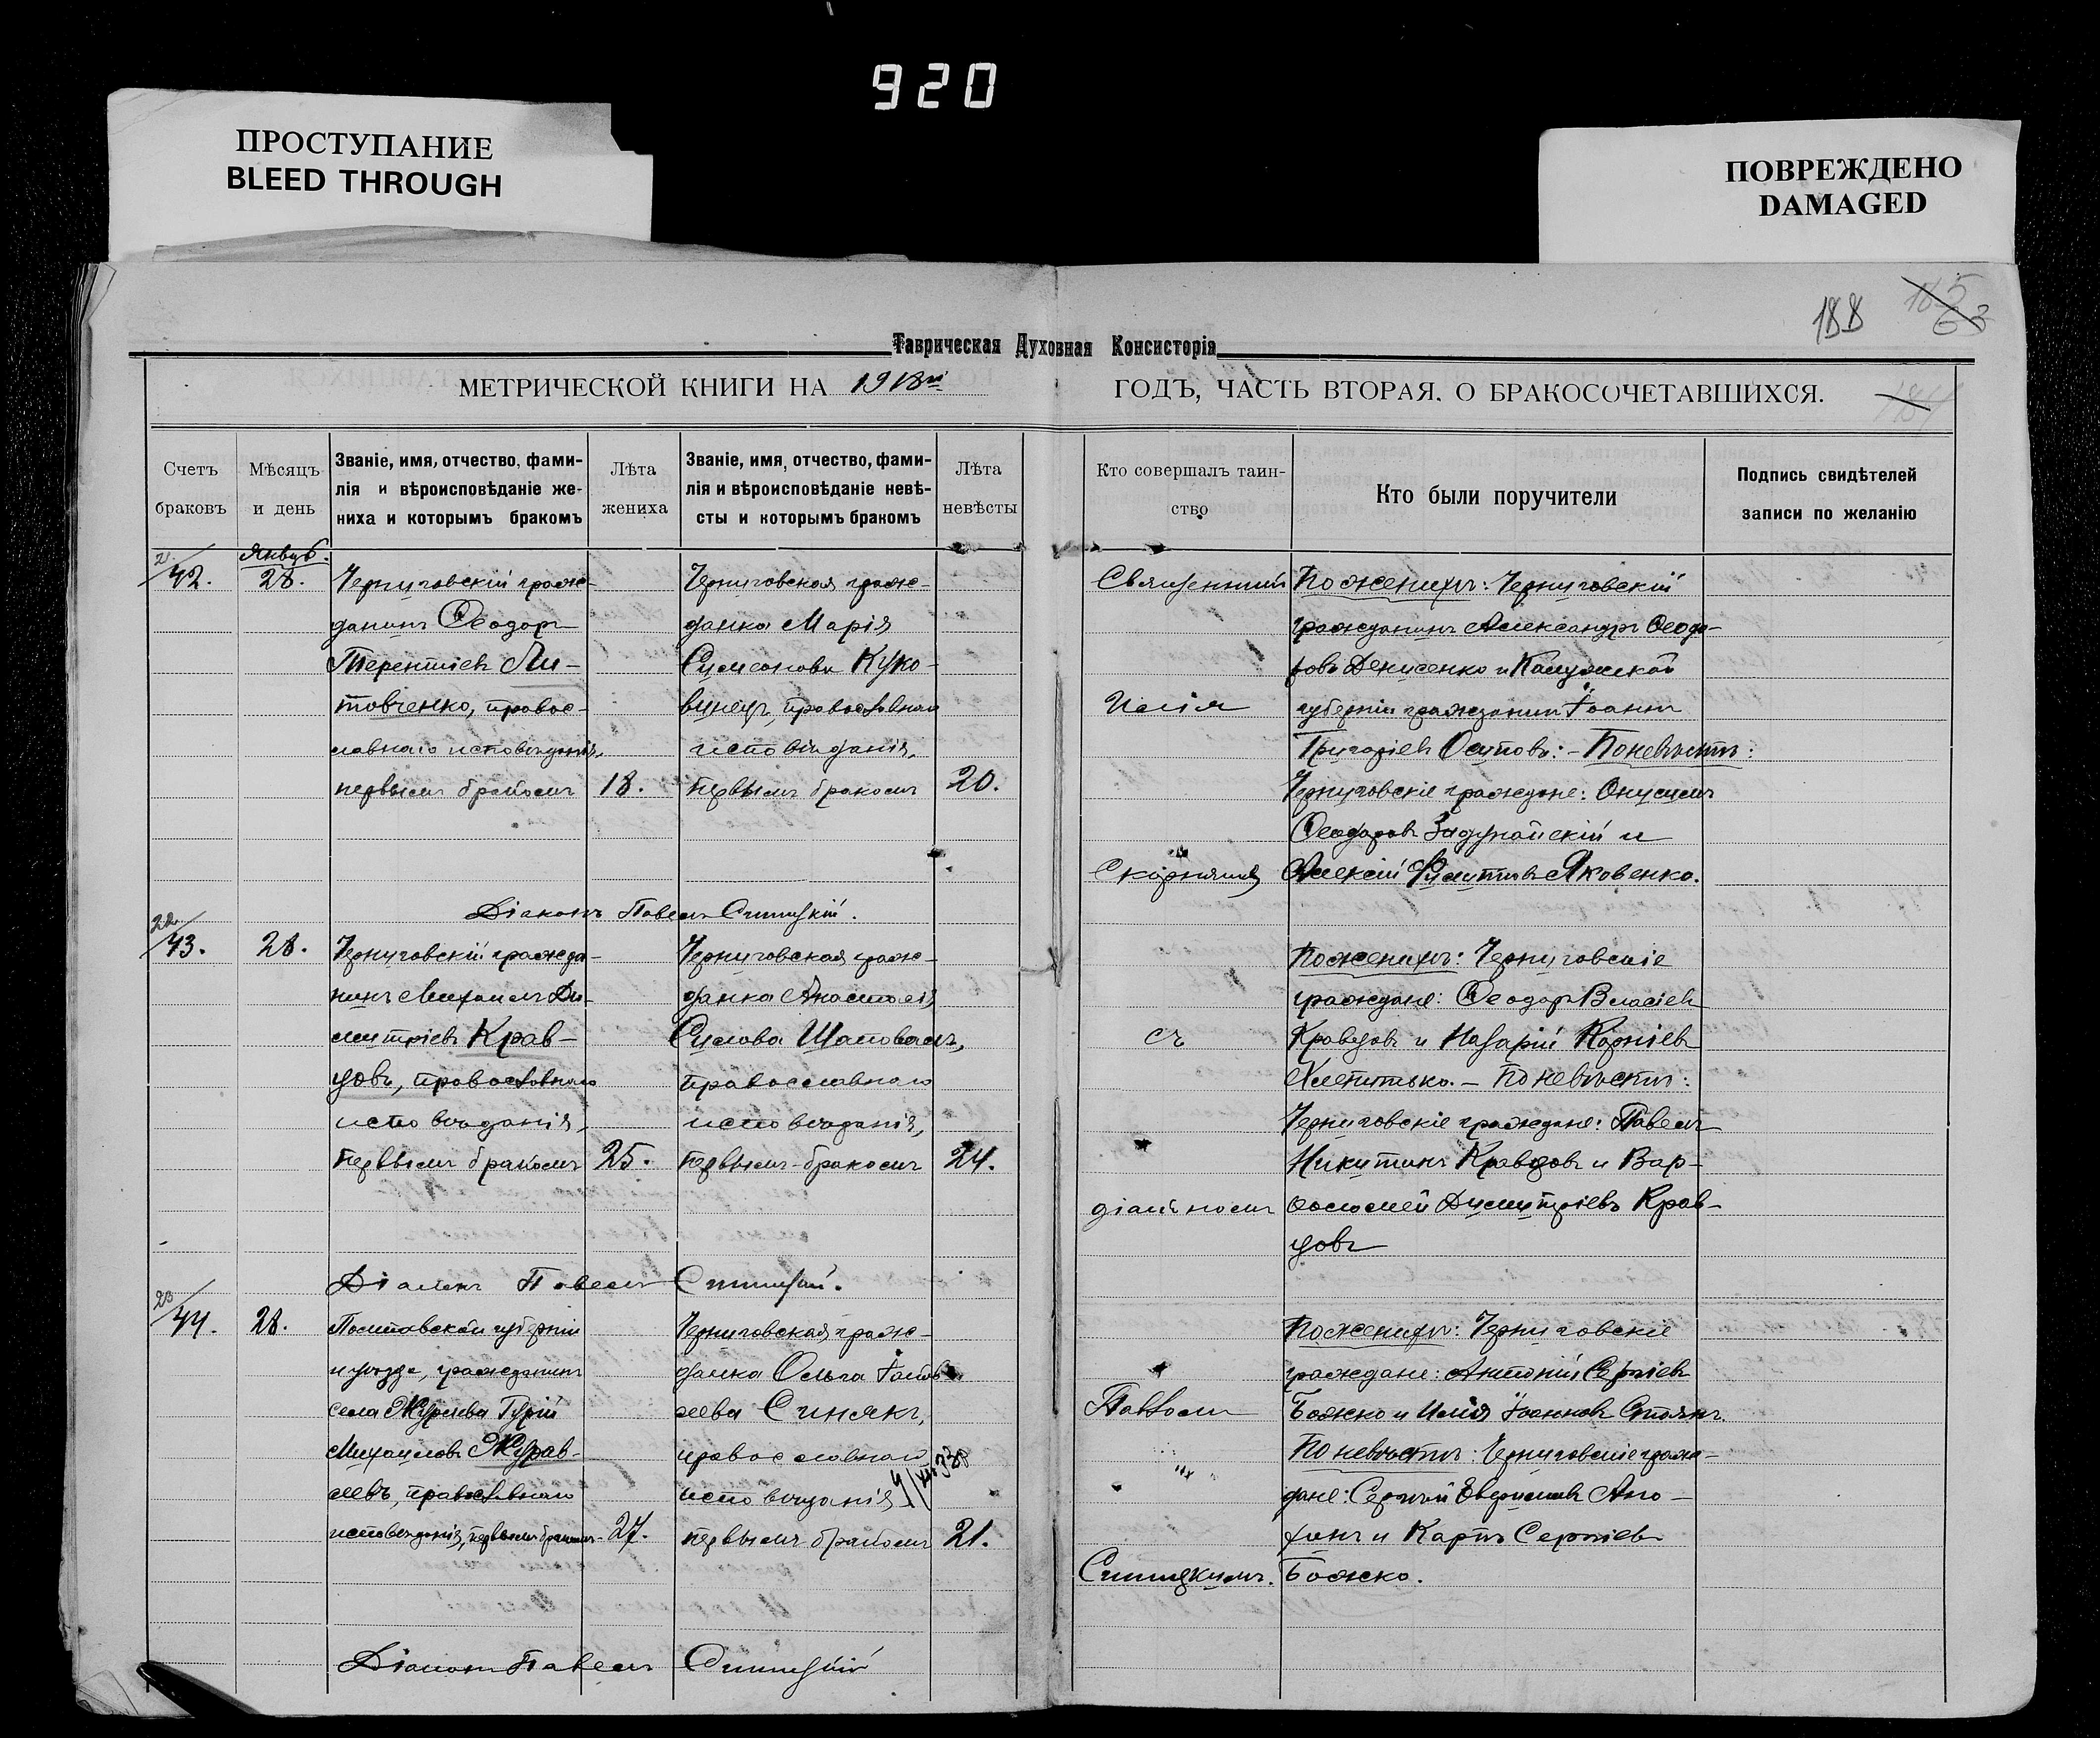 920
ПРОСТУПАНИЕ
BLEED THROUGH
ПОВРЕЖДЕНО
DAMAGED
188
Таврическая Духовная Консисторія
МЕТРИЧЕСКОЙ КНИГИ НА 1918й ГОДЪ, ЧАСТЬ ВТОРАЯ, О БРАКОСОЧЕТАВШИХСЯ.
Счетъ браковъ
Мѣсяцъ и день
Званіе, имя, отчество, фами-
лія и вѣроисповѣданіе же-
ниха и которымъ бракомъ
Лѣта жениха
Званіе, имя, отчество, фами-
лія и вѣроисповѣданіе невѣ-
сты и которымъ бракомъ
Лѣта невѣсты
Кто совершалъ таин-
ство
Кто были поручители
Подпись свидѣтелей
записи по желанію
21
42.
Январ.
28.
Черниговскій граж-
данинъ Ѳеодоръ
Терентіевъ Ли-
товченко, правос-
лавнаго исповѣданія,
первымъ бракомъ
18.
Черниговская граж-
данка Марія
Симеонова Куко-
винецъ, православнаго
исповѣданія,
первымъ бракомъ
20.
Священникъ
Илія
Скорняковъ
По женихѣ: Черниговскій
гражданинъ Александръ Ѳеодо-
ровъ Денисенко и Калужской
губерніи гражданинъ Іоаннъ
Григоріевъ Осиповъ: - По невѣстѣ:
Черниговскіе граждане: Онисимъ
Ѳеодоровъ Задунайскій и
Алексій Филиповъ Яковенко.
Діаконъ Павелъ Спицкій.
22
43.
28.
Черниговскій гражда-
нинъ Михаилъ Ди-
митріевъ Крав-
цовъ, православнаго
исповѣданія,
первымъ бракомъ
25.
Черниговская граж-
данка Анастасія
Сидова Шаповалъ,
православнаго
исповѣданія,
первымъ бракомъ
24.
съ
діакономъ
По женихѣ: Черниговскіе
граждане: Ѳеодоръ Власіевъ
Кравцовъ и Назарій Корніевъ
- По невѣстѣ:
Черниговскіе граждане: Павелъ
Никитинъ Кравцовъ и Вар-
ѳоломей Димитріевъ Крав-
цовъ
Діаконъ Павелъ Спицкій.
23
44.
28.
Полтавской губерніи
и уѣзда, гражданинъ
села Гурій
Михаиловъ Журав-
левъ, православнаго
исповѣданія, первымъ бракомъ
27.
Черниговская граж-
данка Ольга
Синякъ,
православнаго
исповѣданія
первымъ бракомъ
21.
Павломъ
Спицкимъ.
По женихѣ: Черниговскіе
граждане: Антоній Сергіевъ
Божко и Илія Іоанновъ
По невѣстѣ: Черниговскіе граж-
дане: Сергій Ага-
и Карпъ Сергіевъ
Божко.
Діаконъ Павелъ Спицкій